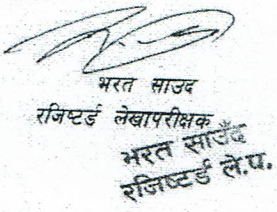 भरत साउद
रजिष्टर्ड लेखापरीक्षक
भरत साउँद
रजिष्टर्ड ले.प.